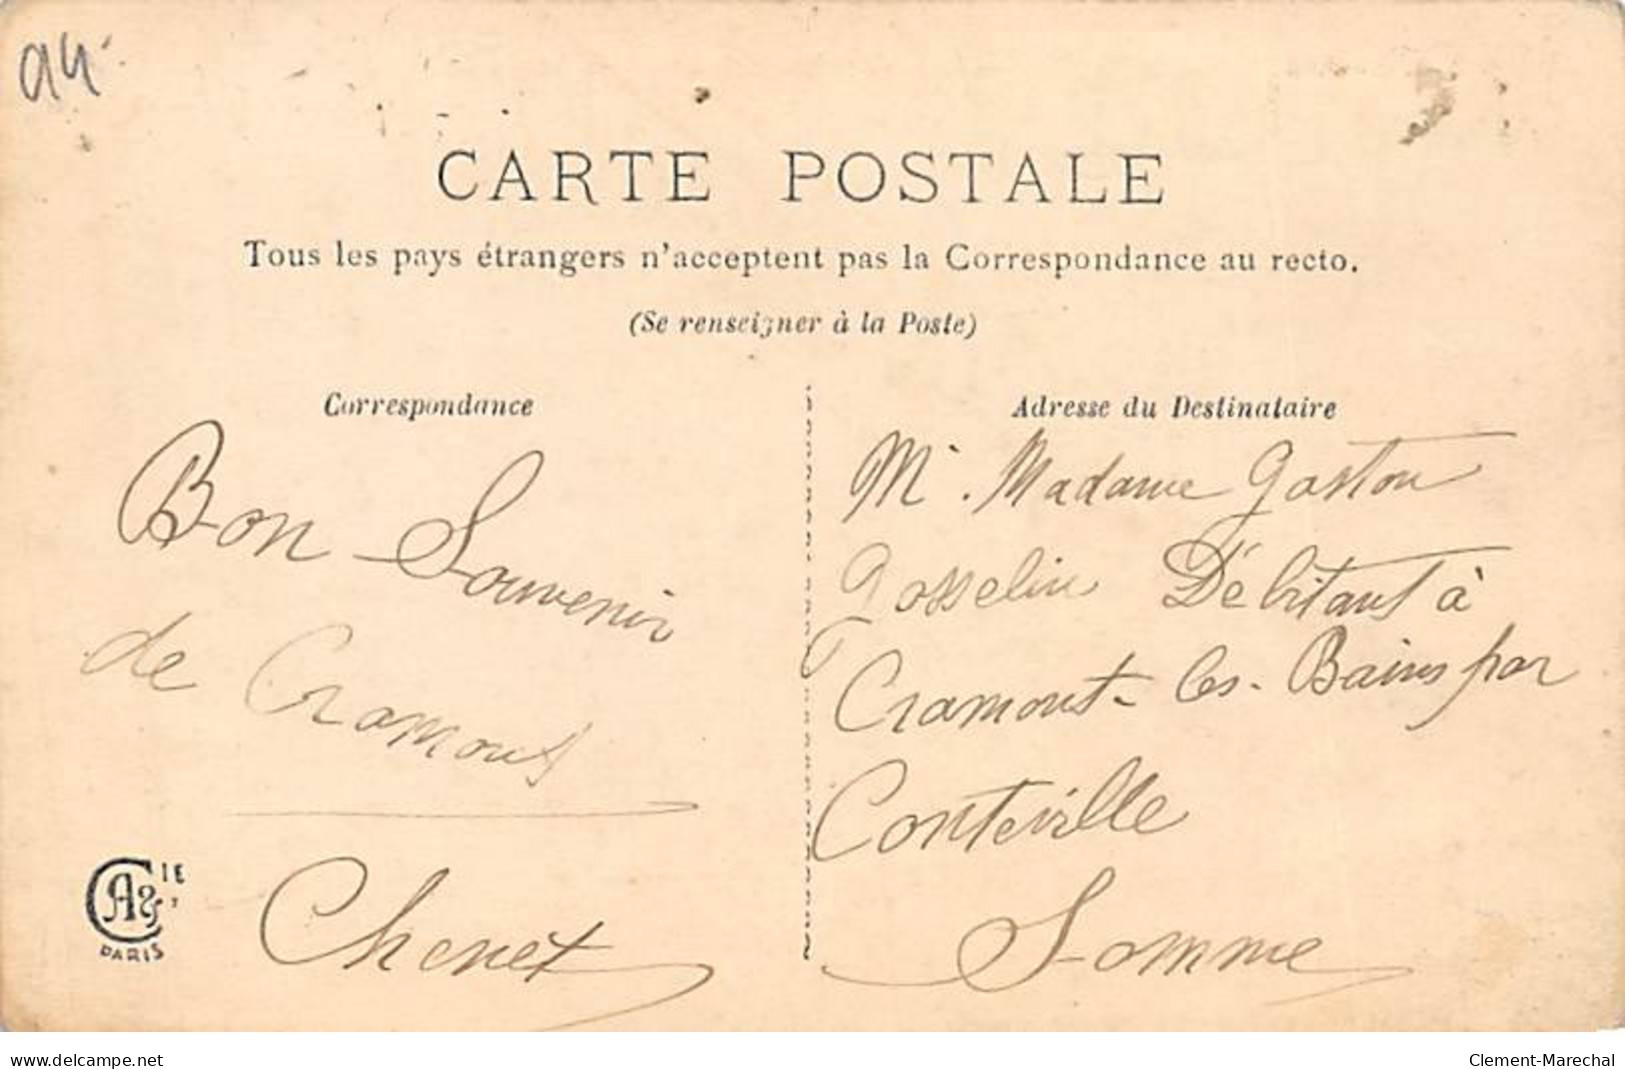 94
CARTE POSTALE
Tous les pays étrangers n'acceptent pas la Correspondance au recto.
(Se renseigner à la Poste)
Correspondance
Bon Souvenir
de Cramont
Chenet
CIE
PARIS
Adresse du Destinataire
Mr. Madame Gaston
Gosselin Débitant à
Cramont-les-Bains par
Conteville
Somme
www.delcampe.net
Clement-Marechal